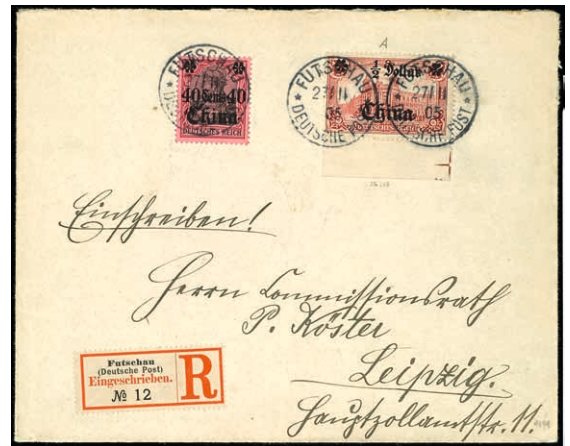 A
FUTSCHAU
40 Cents 40
China
DEUTSCHES REICH
FUTSCHAU
27/11
05
DEUTSCHE
½ Dollar
China
FUTSCHAU
27/11
05
DEUTSCHE POST
Einschreiben!
Herrn Commissionsrath
P. Köster
Leipzig.
Hauptzollamtstr. 11.
Futschau
(Deutsche Post)
Eingeschrieben.
№ 12
R